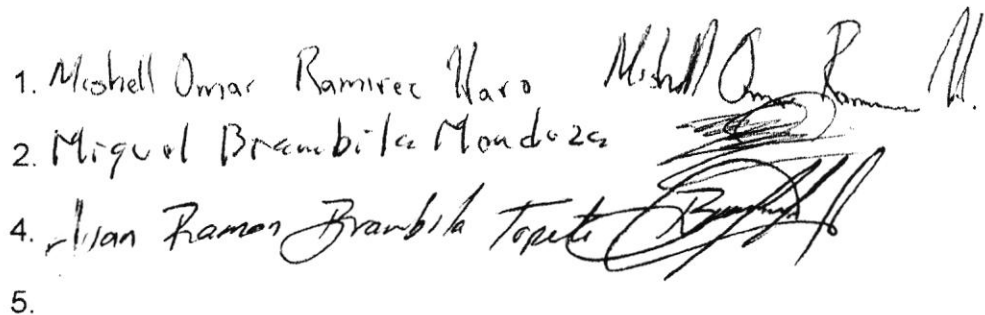 1. Mishell Omar Ramirez Haro Mishell Omar Ramirez H.
2. Miguel Brambila Mendoza
4. Juan Ramon Brambila Topete
5.